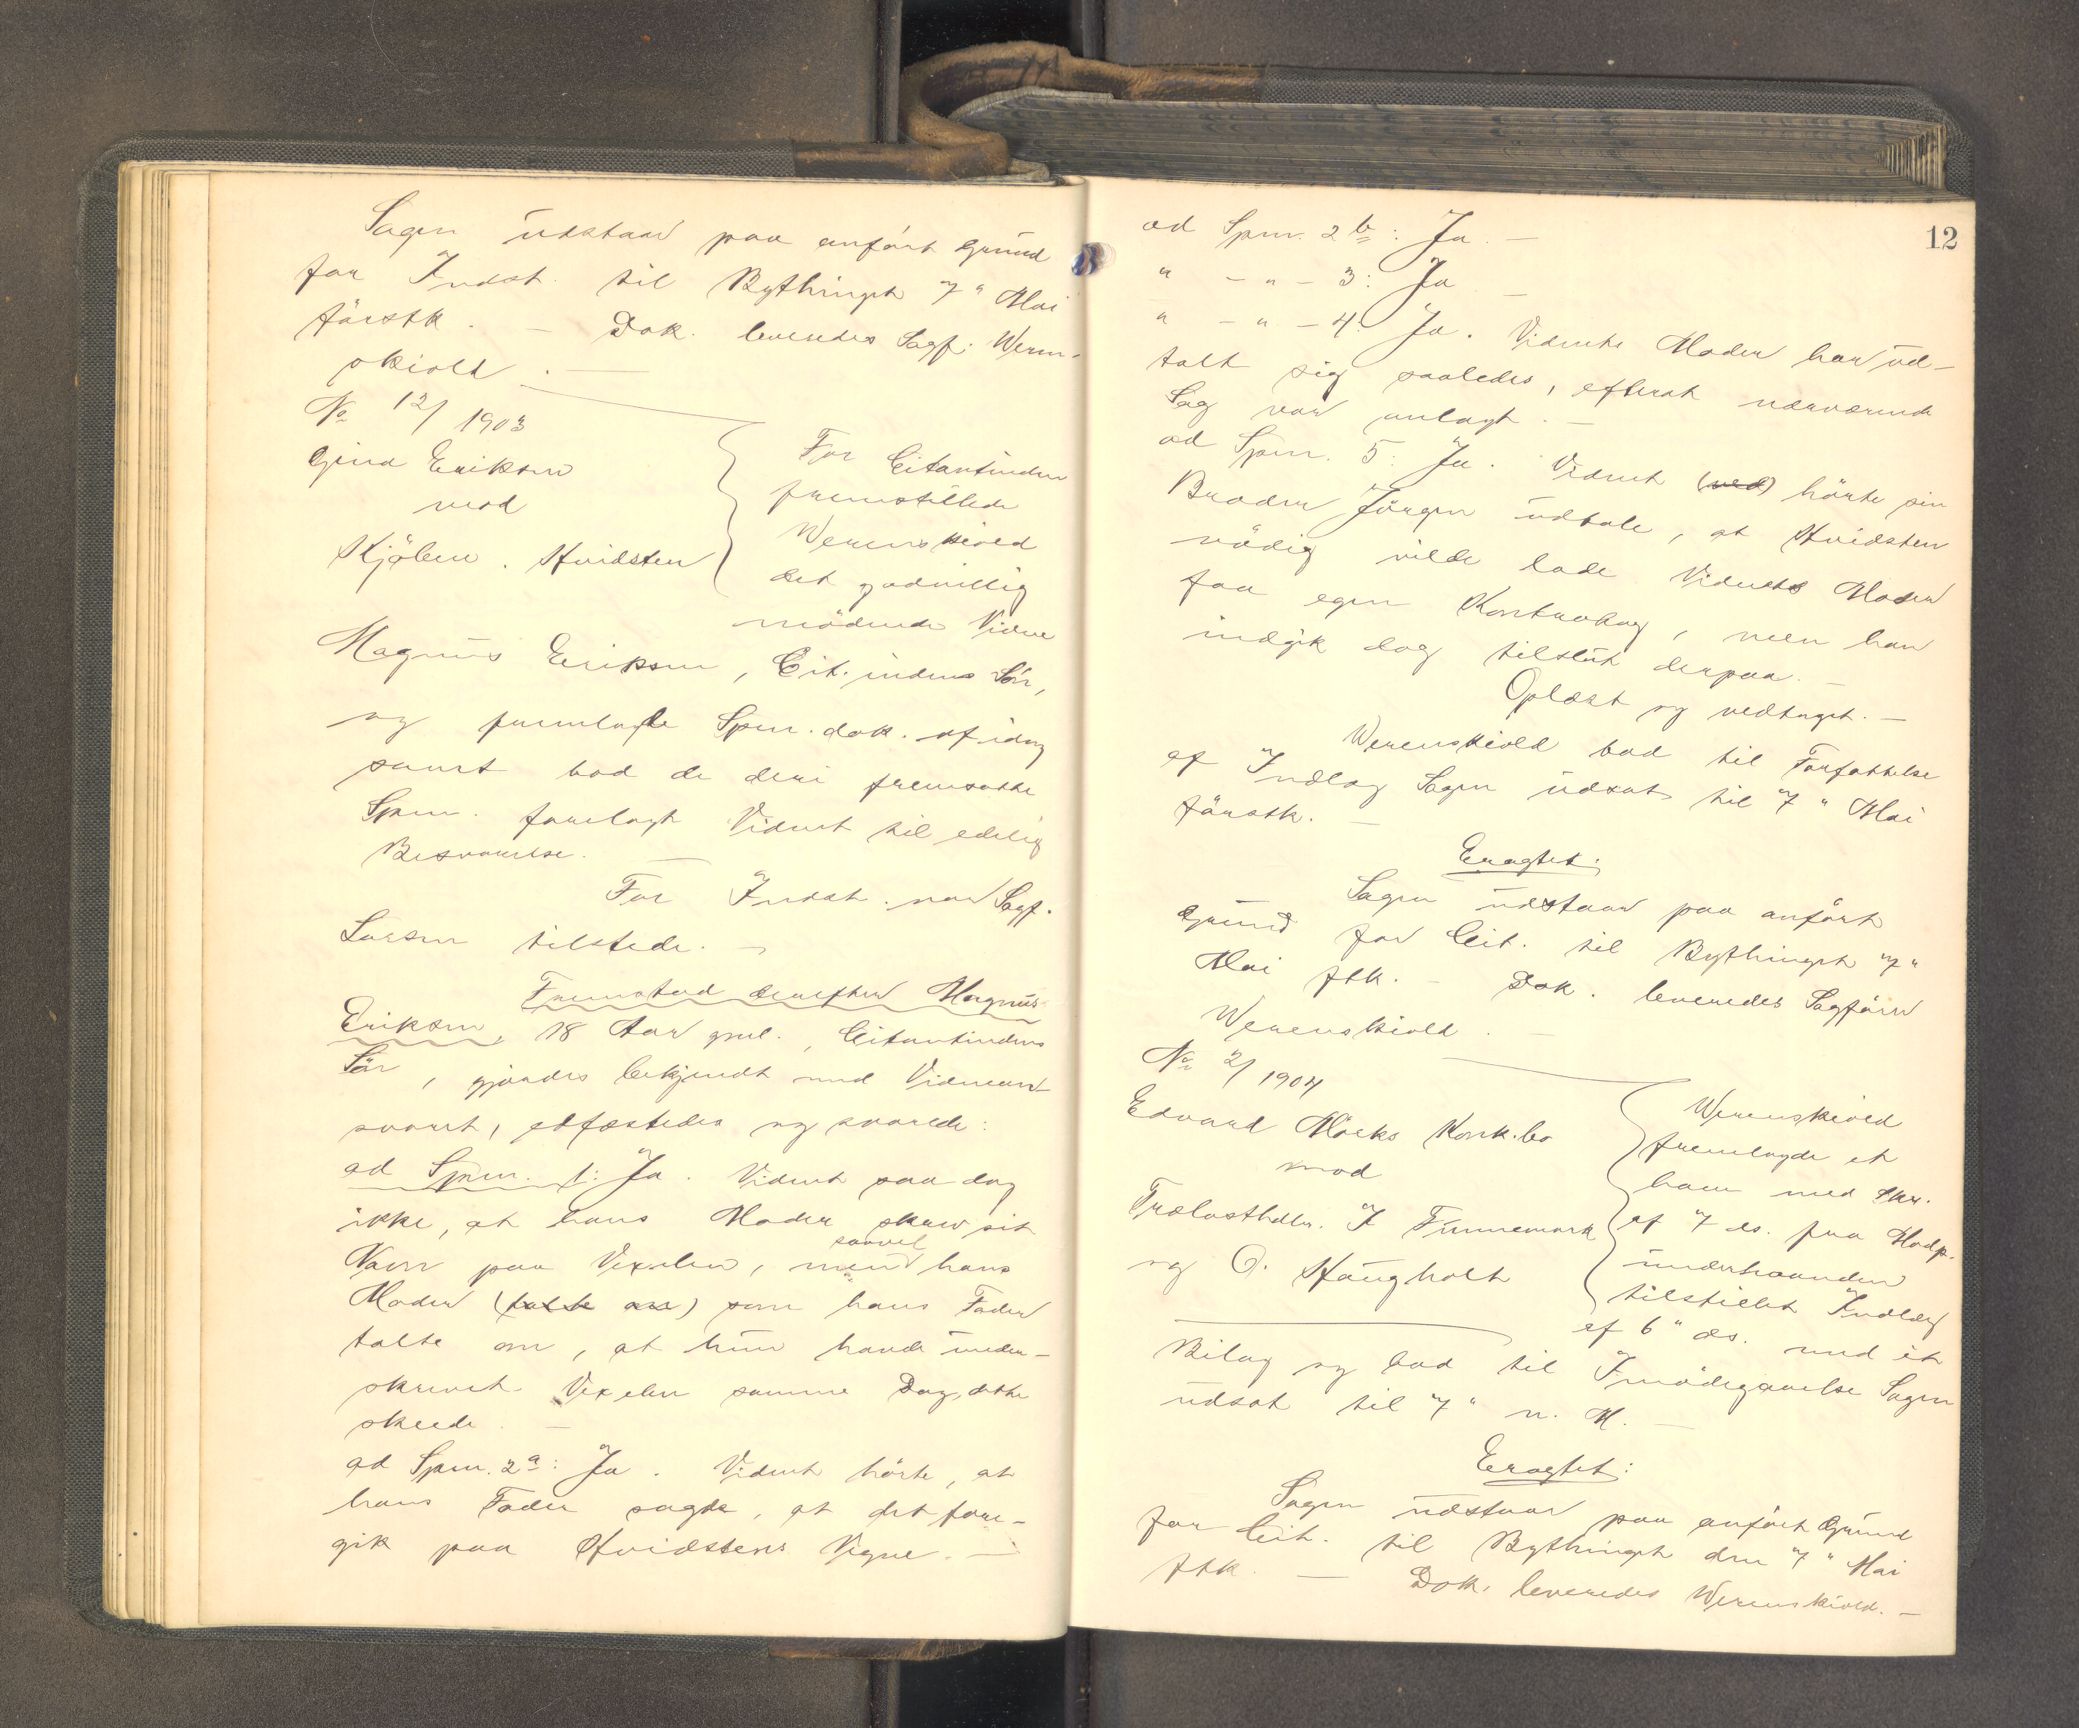 Sagen udstaar paa anført Grund
for Indst. til Bythinget 7" Mai
førstk. — Dok. leveredes Sagf. Weren-
skiold. —
No 12/1903
Gina Eriksen
mod
Kjøbm. Hvidsten
For Citantinden
fremstillede
Werenskiold
det godvillig
mødende Vidne
Magnus Eriksen, Cit.indens Søn,
og fremlagde Spm.dok. af idag
samt bad de deri fremsatte
Spm. forelagt Vidnet til edelig
Besvarelse. —
For Indst. var Sagf.
Larsen tilstede. —
Fremstod derefter Magnus
Eriksen, 18 Aar gml., Citantindens
Søn, gjordes bekjendt med Vidnean-
svaret, edfæstedes og svarede:
ad Spm. 1: Ja. Vidnet saa dog
ikke, at hans Moder skrev sit
Navn paa Vexelen, men saavel hans
Moder (talte om) som hans Fader
talte om, at hun havde under-
skrevet Vexelen samme Dag, dette
skeede. —
ad Spm. 2a: Ja. Vidnet hørte, at
hans Fader sagde, at det fore-
gik paa Hvidstens Vegne. —
12
ad Spm. 2b: Ja. —
" — " — 3: Ja —
" — " — 4: Ja. Vidnets Moder har ud-
talt sig saaledes, efterat nærværende
Sag var anlagt. —
ad Spm. 5: Ja. Vidnet (ved) hørte sin
Broder Jørgen udtale, at Hvidsten
nødig vilde lade Vidnets Moder
faa egen Kontrabog, men han
indgik dog tilslut derpaa. —
Oplæst og vedtaget. —
Werenskiold bad til Forfattelse
af Indlæg Sagen udsat til 7" Mai
førstk. —
Eragtet:
Sagen udstaar paa anført
Grund for Cit. til Bythinget "7"
Mai fstk. — Dok. leveredes Sagfører
Werenskiold. —
No 2/1904
Edvard Moeks Konk.bo
mod
Trælasthdlr. I Finnemark
og O. Haugholt
Werenskiold
fremlagde et
ham med Skr.
af 7 ds. fra Modp.
underhaanden
tilstillet Indlæg
af 6" ds. med et
Bilag og bad til Imødegaaelse Sagen
udsat til "7" n. M. —
Eragtet:
Sagen udstaar paa anført Grund
for Cit. til Bythinget den "7" Mai
fstk. — Dok. leveredes Werenskiold. —